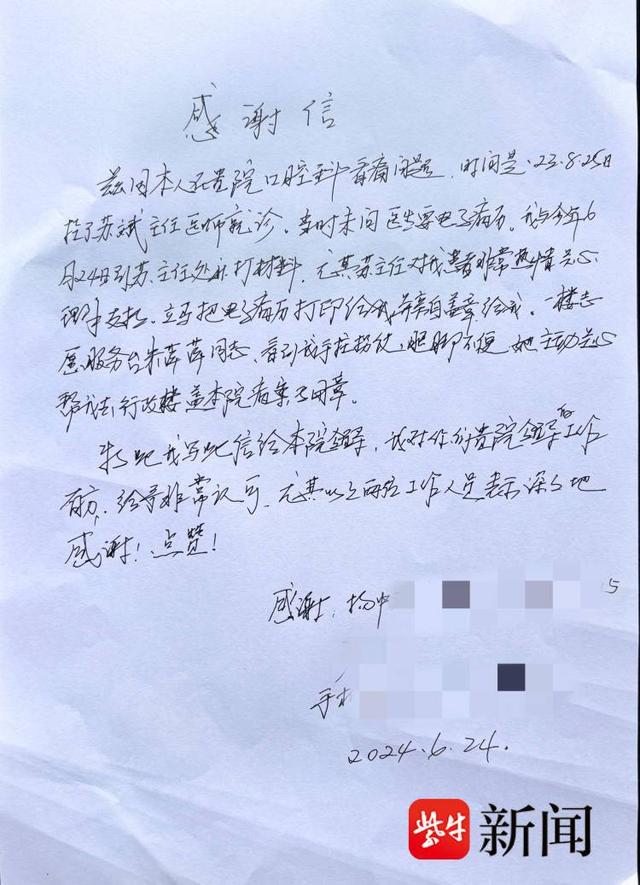 感谢信
兹因本人在贵院口腔科看病问题，时间是·23·8·25日
挂了苏斌主任医师就诊。当时未问医生要电子病历。我与今年6
月24日到苏主任处补打材料，尤其苏主任对我患者非常热情关心
理解支持、立马把电子病历打印给我，并亲自盖章给我。一楼志
愿服务台朱萍萍同志、看到我手拄拐杖，腿脚不便她主动关心
帮我去行政楼盖本院病案专用章。
特此我写此信给本院领导，我对你们贵院领导的工作
有方，给予非常认可，尤其以上两位工作人员表示深深地
感谢！点赞！
感谢：扬中 5
手机
2024.6.24.
紫牛 新闻